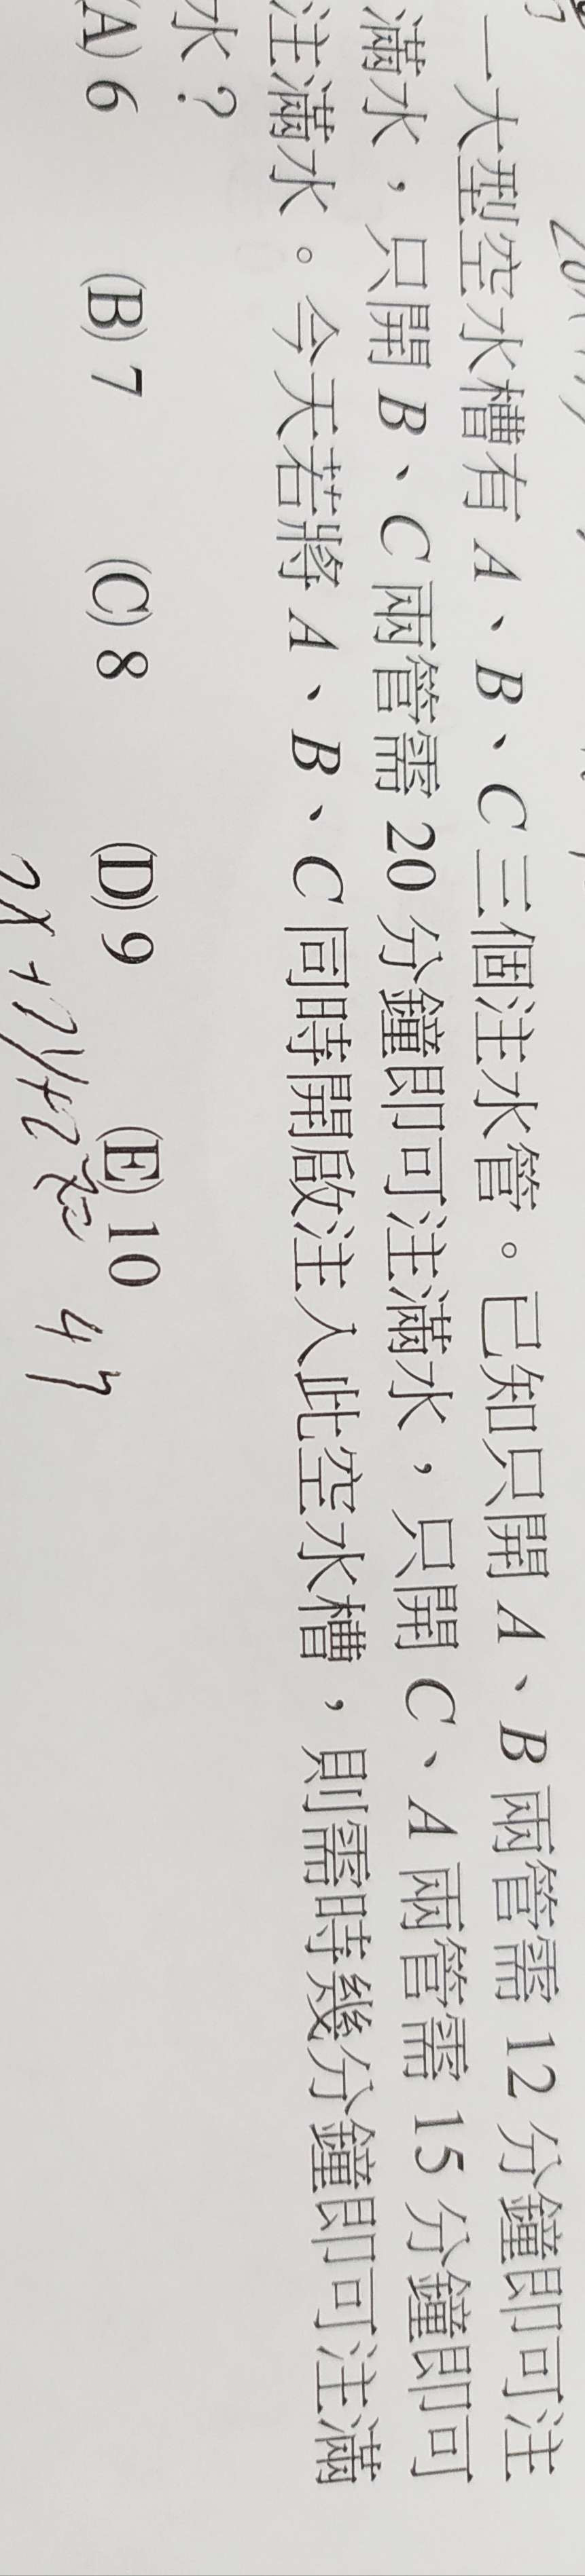 一大型空水槽有 A、B、C 三個注水管。已知只開 A、B 兩管需 12 分鐘即可注
滿水，只開 B、C 兩管需 20 分鐘即可注滿水，只開 C、A 兩管需 15 分鐘即可
注滿水。今天若將 A、B、C 同時開啟注入此空水槽，則需時幾分鐘即可注滿
水？
(A) 6 (B) 7 (C) 8 (D) 9 (E) 10